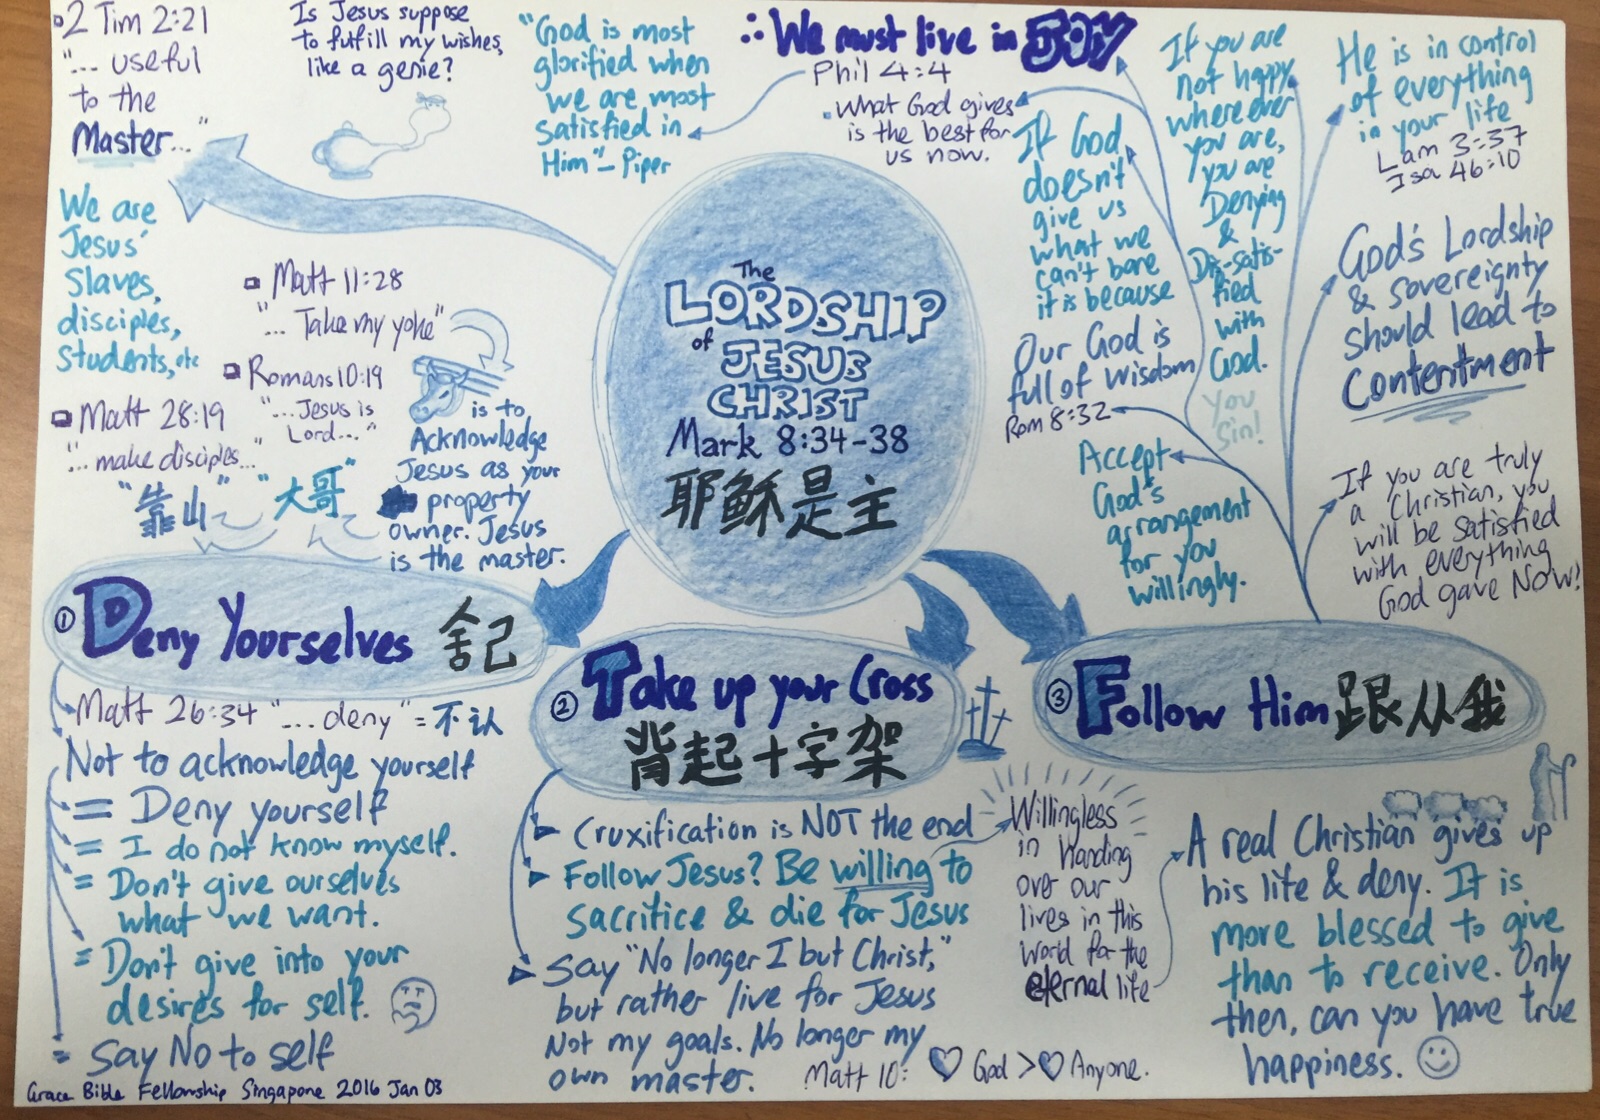 2 Tim 2:21
"... useful
to the
Master..."
Is Jesus suppose
to fulfill my wishes,
like a genie?
"God is most
glorified when
we are most
satisfied in
Him" - Piper
∴ We must live in JOY
Phil 4:4
. What God gives
is the best for
us now.
If God
doesn't
give us
what we
can't bare
it is because
Our God is
full of wisdom
Rom 8:32
Accept
God's
arrangement
for you
willingly.
If you are
not happy
where ever
you are,
you are
Denying
&
Dis-satis-
fied
with
God.
You
Sin!
He is in control
of everything
in your life
Lam 3:37
Isa 46:10
God's Lordship
& sovereignty
should lead to
Contentment
If you are truly
a Christian, you
will be satisfied
with everything
God gave Now!
We are
Jesus'
Slaves,
disciples,
students, etc
Matt 11:28
"... Take my yoke"
Romans 10:19
"...Jesus is
Lord..."
Matt 28:19
"... make disciples..."
"靠山" "大哥"
is to
Acknowledge
Jesus as your
property
owner. Jesus
is the master.
The
LORDSHIP
of JESUS
CHRIST
Mark 8:34-38
耶稣是主
① Deny Yourselves 舍己
Matt 26:34 "... deny" = 不认
Not to acknowledge yourself
= Deny yourself
= I do not know myself.
= Don't give ourselves
what we want.
= Don't give into your
desires for self.
= Say No to self
Grace Bible Fellowship Singapore 2016 Jan 03
② Take up your Cross
背起十字架
Cruxification is NOT the end
Follow Jesus? Be willing to
sacrifice & die for Jesus
Say "No longer I but Christ,"
but rather live for Jesus
Not my goals. No longer my
own master.
Matt 10: ♡ God > ♡ Anyone.
Willingless
in Handing
over our
lives in this
world for the
eternal life
③ Follow Him 跟从我
A real Christian gives up
his life & deny. It is
more blessed to give
than to receive. Only
then, can you have true
happiness.